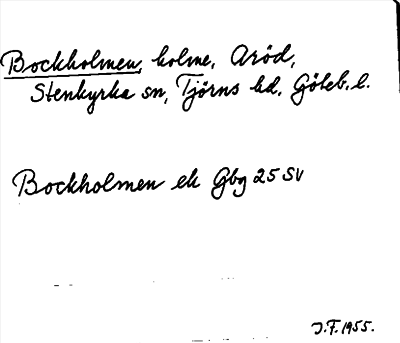 Bockholmen, holme, Aröd,
Stenkyrka sn, Tjörns hd, Göteb. l.
Bockholmen ek Gbg 25 SV
J.F. 1955.